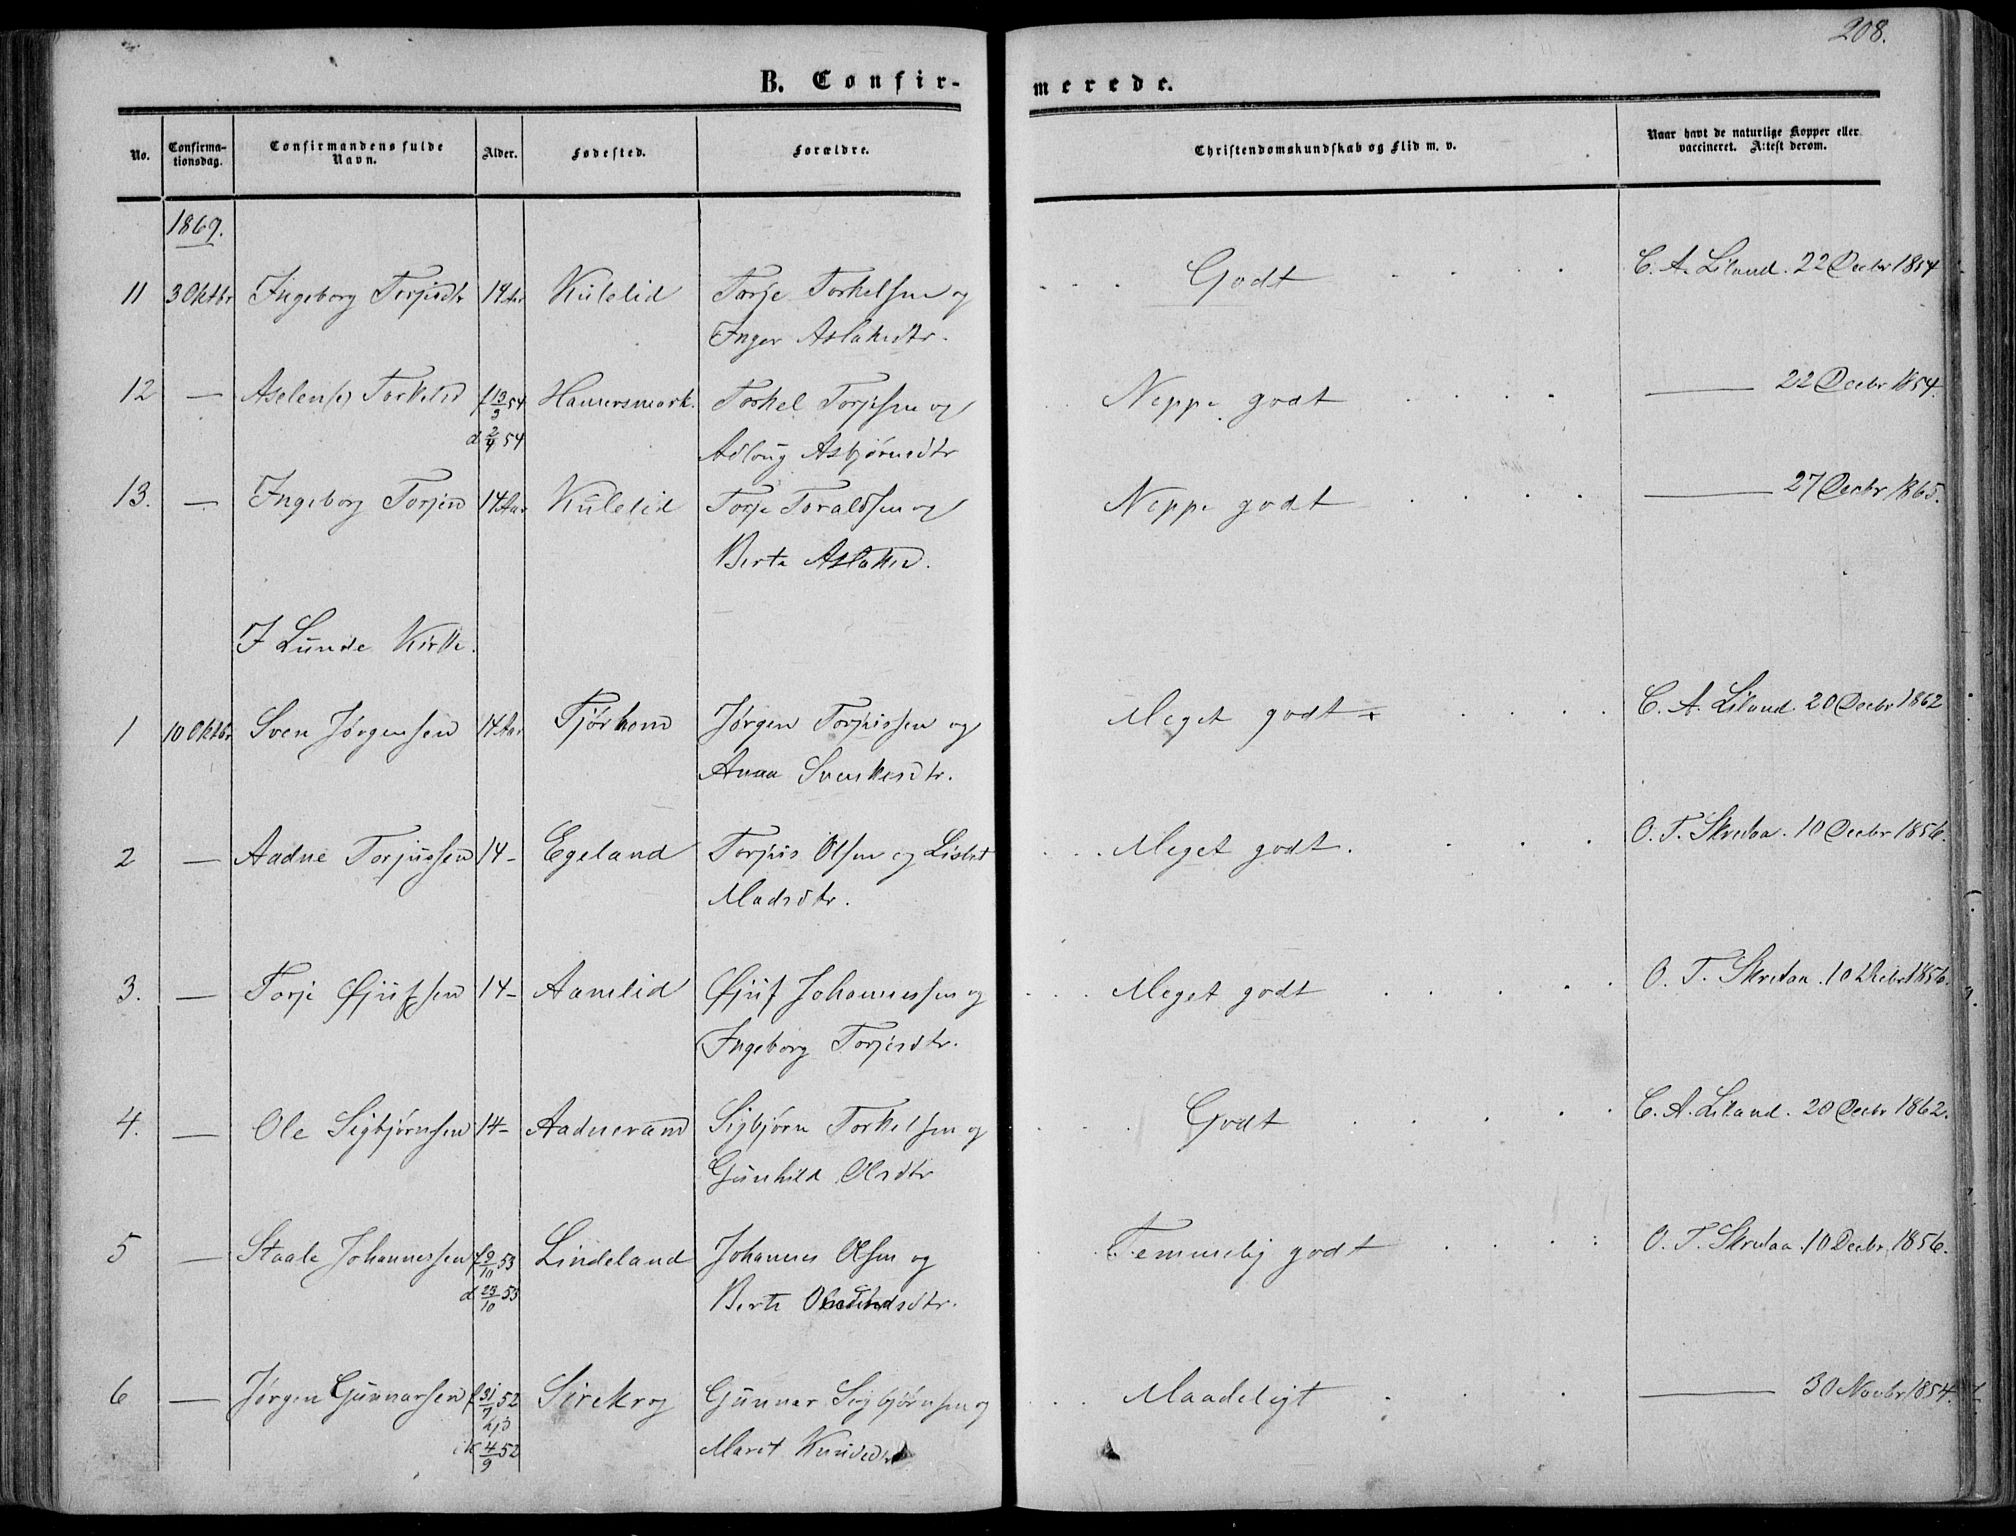 208.
B. Confir- merede.
No. Confirma-tionsdag. Confirmandens fulde Navn. Alder. Fødested. Forældre. Christendomskundskab og Flid m. v. Naar havt de naturlige Kopper eller vaccineret. Attest derom.
1869.
11 3 Oktbr Ingeborg Torjesdtr 14 Aar Kulelid Torje Torkelsen og Godt C. A. Liland. 22 Decbr 1854
Inger Aslaksdtr.
12 — Torkelsd f 13/3 54 Haunersmark. Torkel Torjesen og Neppe godt — 22 Decbr 1854.
d 2/4 54 Adloug Asbjørnsdtr
13. — Ingeborg Torjesd 14 Aar Kulelid Torje Toraldsen og Neppe godt — 27 Decbr 1865.
Berte Aslaksd.
I Lunde Kirke.
1 10 Oktbr Sven Jørgensen 14 Aar Tjørhom Jørgen Torjussen og Meget godt C. A. Liland. 20 Decbr 1862
Anna Svenkesdtr.
2 — Aadne Torjussen 14 - Egeland Torjus Olsen og Lisbet Meget godt. O. T. Skredaa. 10 Decbr 1856.
Madsdtr.
3. — Torje Øjufsen 14 - Aamlid Øjuf Johannessen og Meget godt O. T. Skredaa. 10 Decbr 1856.
Ingeborg Torjesdtr.
4. — Ole Sigbjørnsen 14 - Aadneram Sigbjørn Torkelsen og Godt C. A. Liland. 20 Decbr 1862.
Gunhild Olsdtr
5 — Staale Johannessen f 9/10 53 Lindeland Johannes Olsen og Temmelig godt O. T. Skredaa. 10 Decbr. 1856.
d 23/10 53 Berte
6 — Jørgen Gunnarsen f 31/7 52 Sirekrog Gunnar Sigbjørnsen og Maadeligt — 30 Novbr 1854.
hjd
i K 4/9 52 Marit Knudsdtr